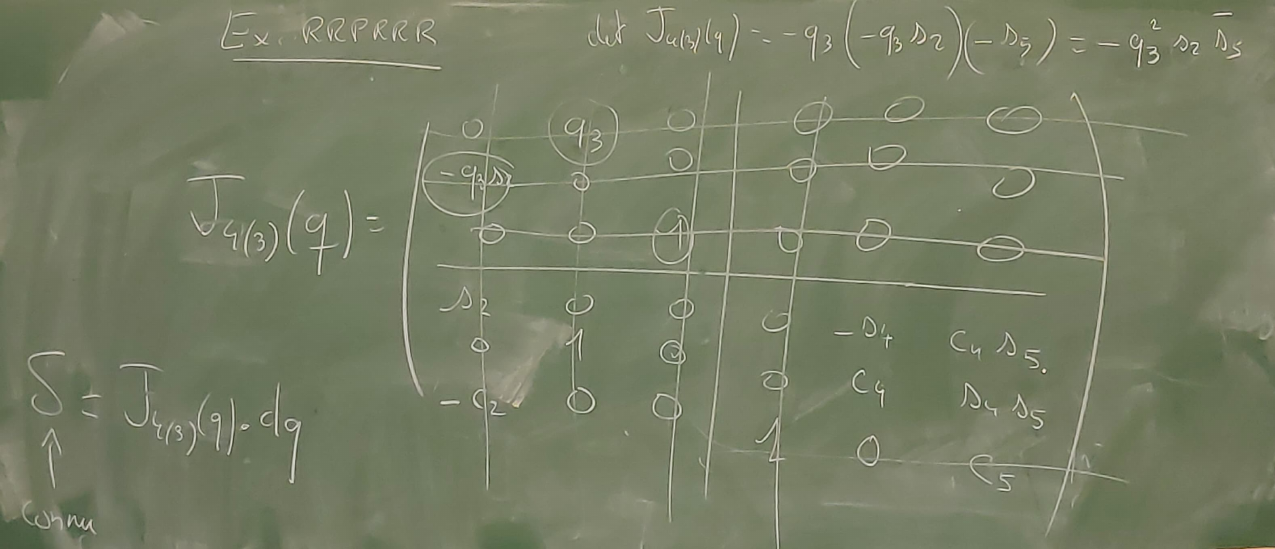 Ex. RRPRRR
det J₄₍₃₎(q) = -q₃(-q₃s₂)(-s₅) = -q₃² s₂ s₅
0 q₃ 0 0 0 0
-q₃s₂ 0 0 0 0 0
J₄₍₃₎(q) =
0 0 1 0 0 0
s₂ 0 0 0 -s₄ c₄ s₅
0 1 0 0 c₄ s₄ s₅
-c₂ 0 0 1 0 c₅
δ = J₄₍₃₎(q) · dq
↑
connu